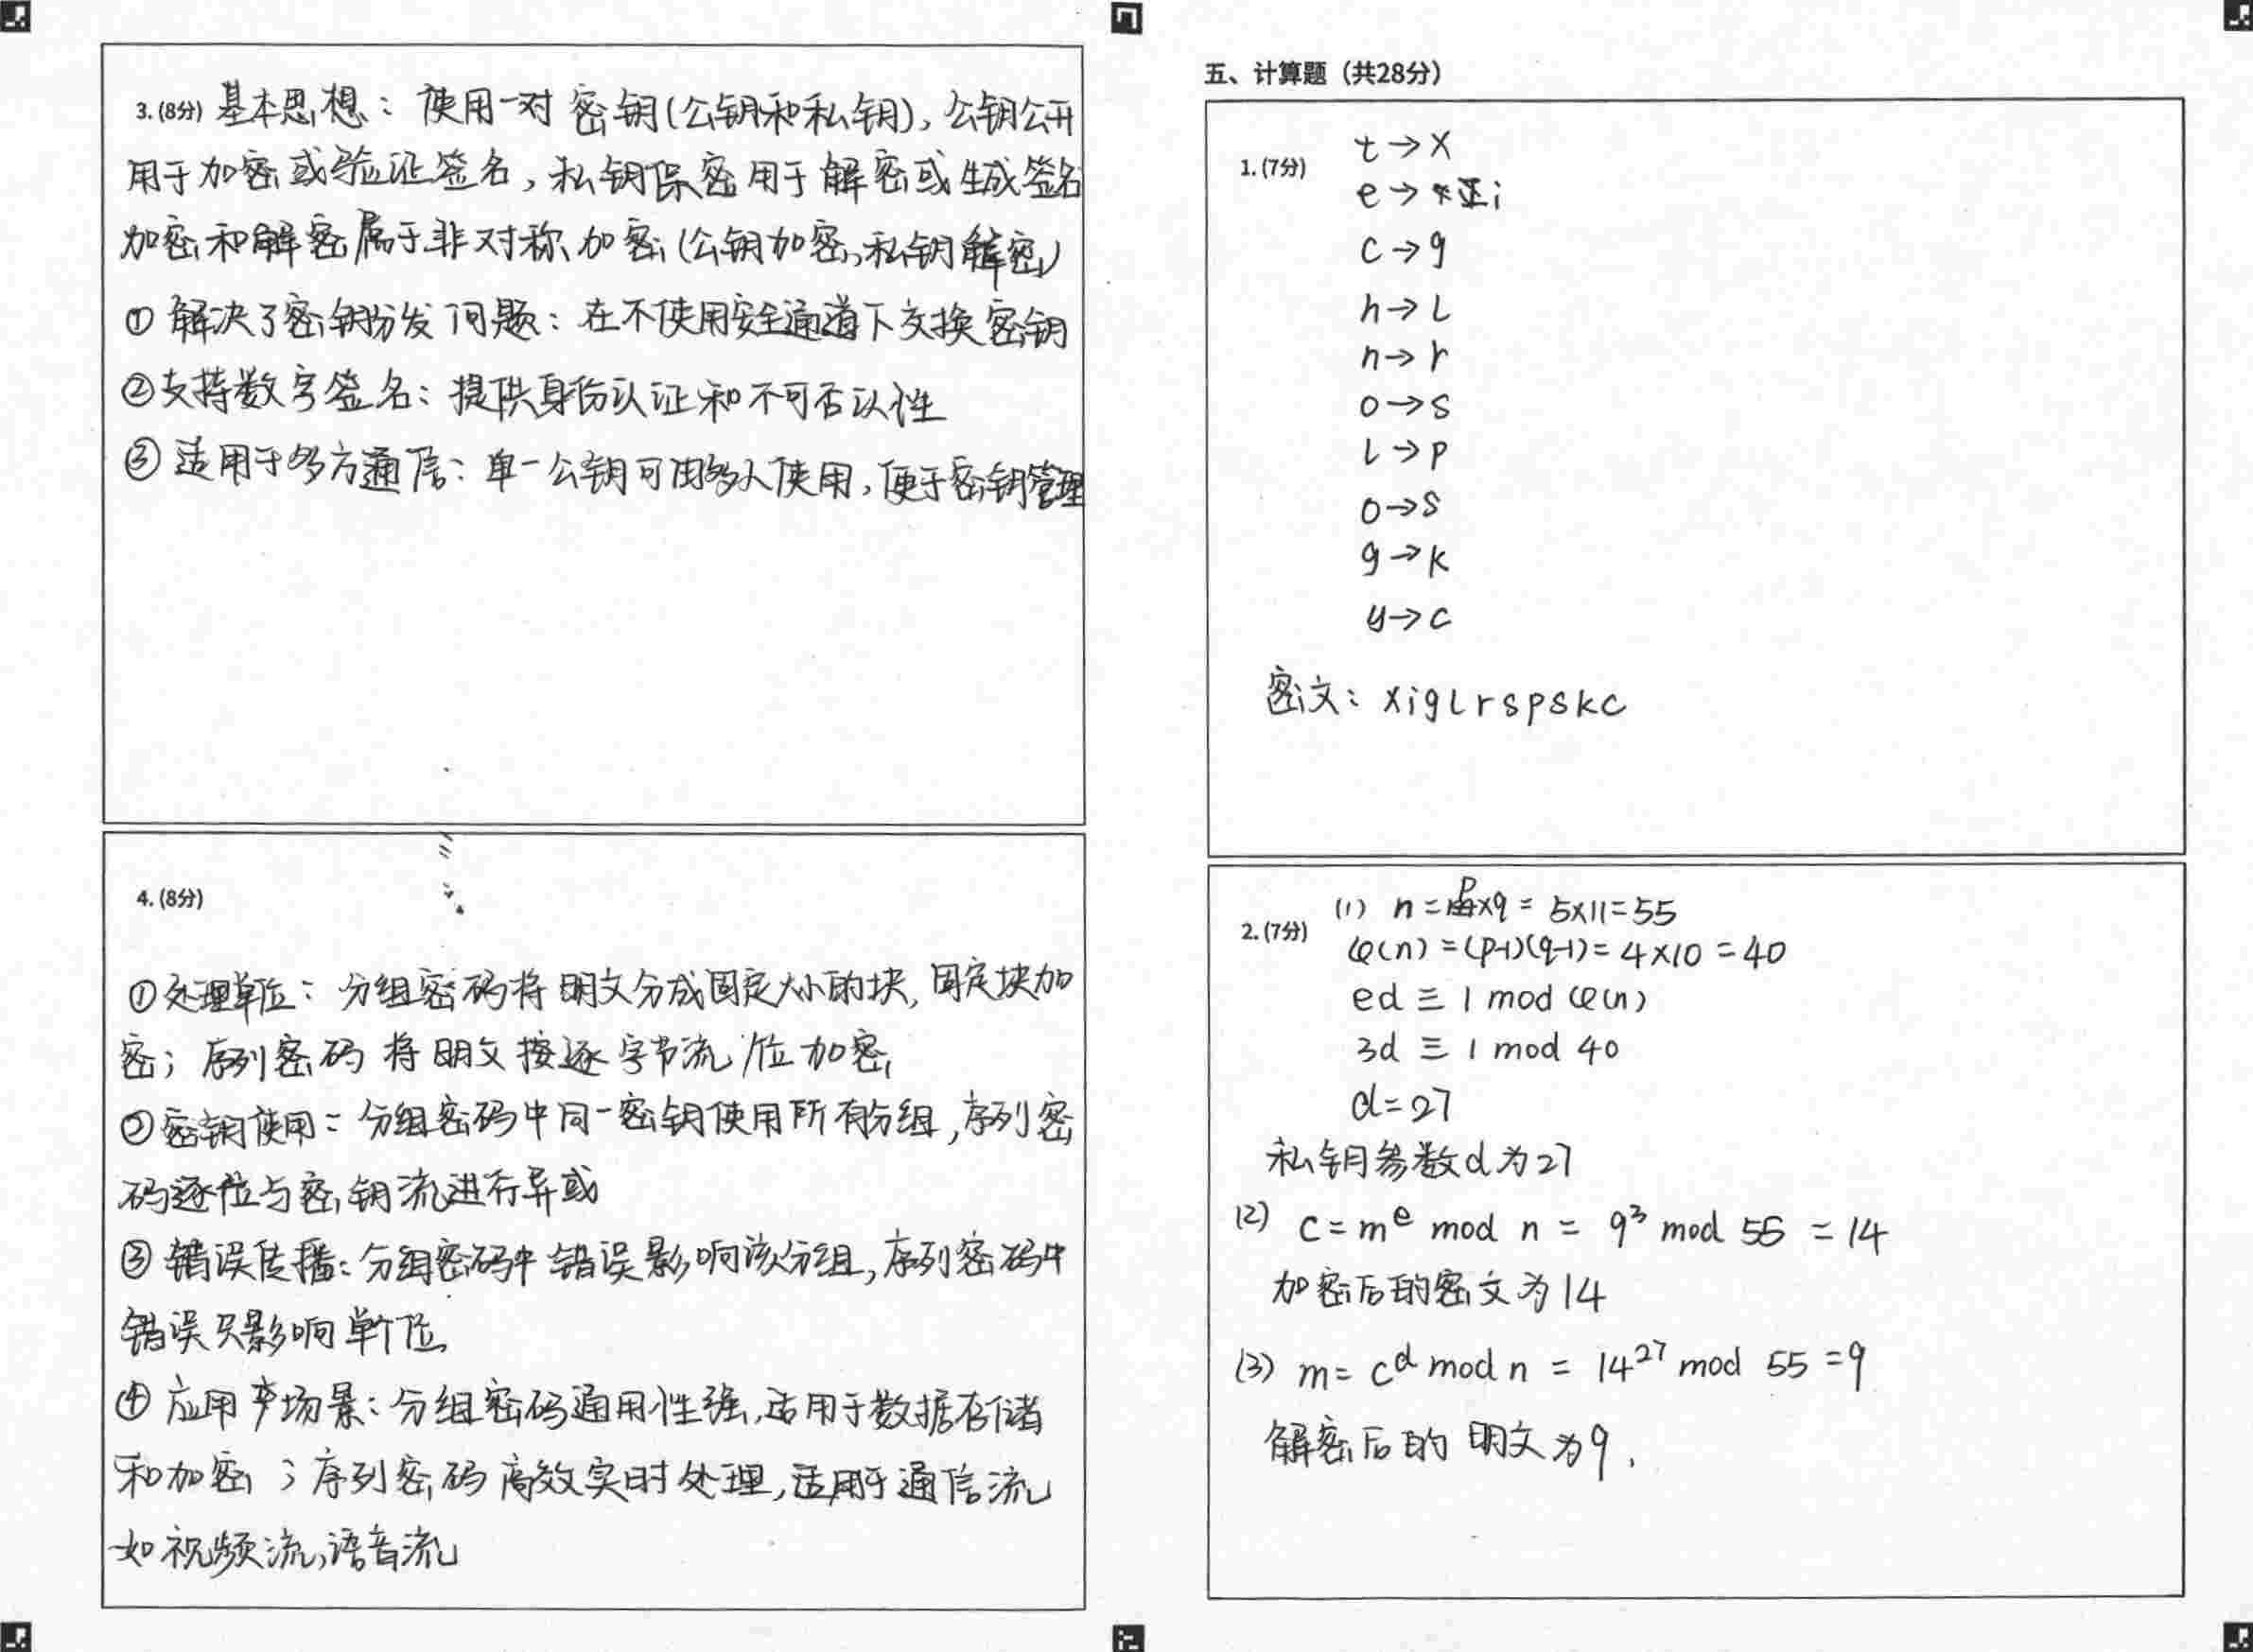 3.(8分) 基本思想：使用一对密钥(公钥和私钥)，公钥公开
用于加密或验证签名，私钥保密用于解密或生成签名
加密和解密属于非对称加密(公钥加密，私钥解密)
① 解决了密钥分发问题：在不使用安全通道下交换密钥
②支持数字签名：提供身份认证和不可否认性
③ 适用于多方通信：单一公钥可由多人使用，便于密钥管理
4.(8分)
①处理单位：分组密码将明文分成固定大小的块，固定块加
密；序列密码将明文按逐字节流/位加密
②密钥使用：分组密码中同一密钥使用所有分组，序列密
码逐位与密钥流进行异或
③ 错误传播：分组密码中错误影响该分组，序列密码中
错误只影响单个位
④ 应用场景：分组密码通用性强，适用于数据存储
和加密；序列密码高效实时处理，适用于通信流
如视频流，语音流
五、计算题（共28分）
1.(7分) t→x
e→i
c→g
h→L
n→r
o→s
L→p
o→s
g→k
y→c
密文：xigLrspskc
2.(7分) (1) n=p×q=5×11=55
φ(n)=(p-1)(q-1)=4×10=40
ed≡1 mod φ(n)
3d≡1 mod 40
d=27
私钥参数d为27
(2) c=m^e mod n = 9³ mod 55 = 14
加密后的密文为14
(3) m=c^d mod n = 14²⁷ mod 55 =9
解密后的明文为9.